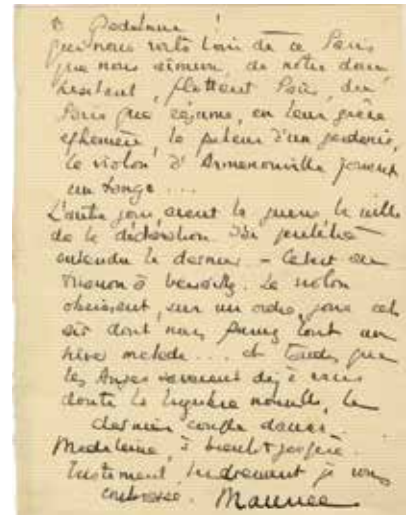 Ô Madeleine !
que nous voilà loin de ce Paris
que nous aimons, de notre doux,
hésitant, flottant Paris, du
Paris que résume, en leur grâce
éphémère, le d'un gardenia,
le violon d'Armenonville jouant
un tango ....
L'autre jour, avant la guerre, la veille
de la déclaration. J'ai peut-être
entendu le dernier – C'était au
Trianon à Versailles. Le violon
obéissant, sur un ordre, joua cet
air dont nous fîmes tout un
rêve malade .... et tandis que
les Anges savaient déjà sans
doute la nouvelle, le
dernier couple dansa.
Madeleine, à bientôt j'espère.
Tristement, tendrement je vous
embrasse. Maurice